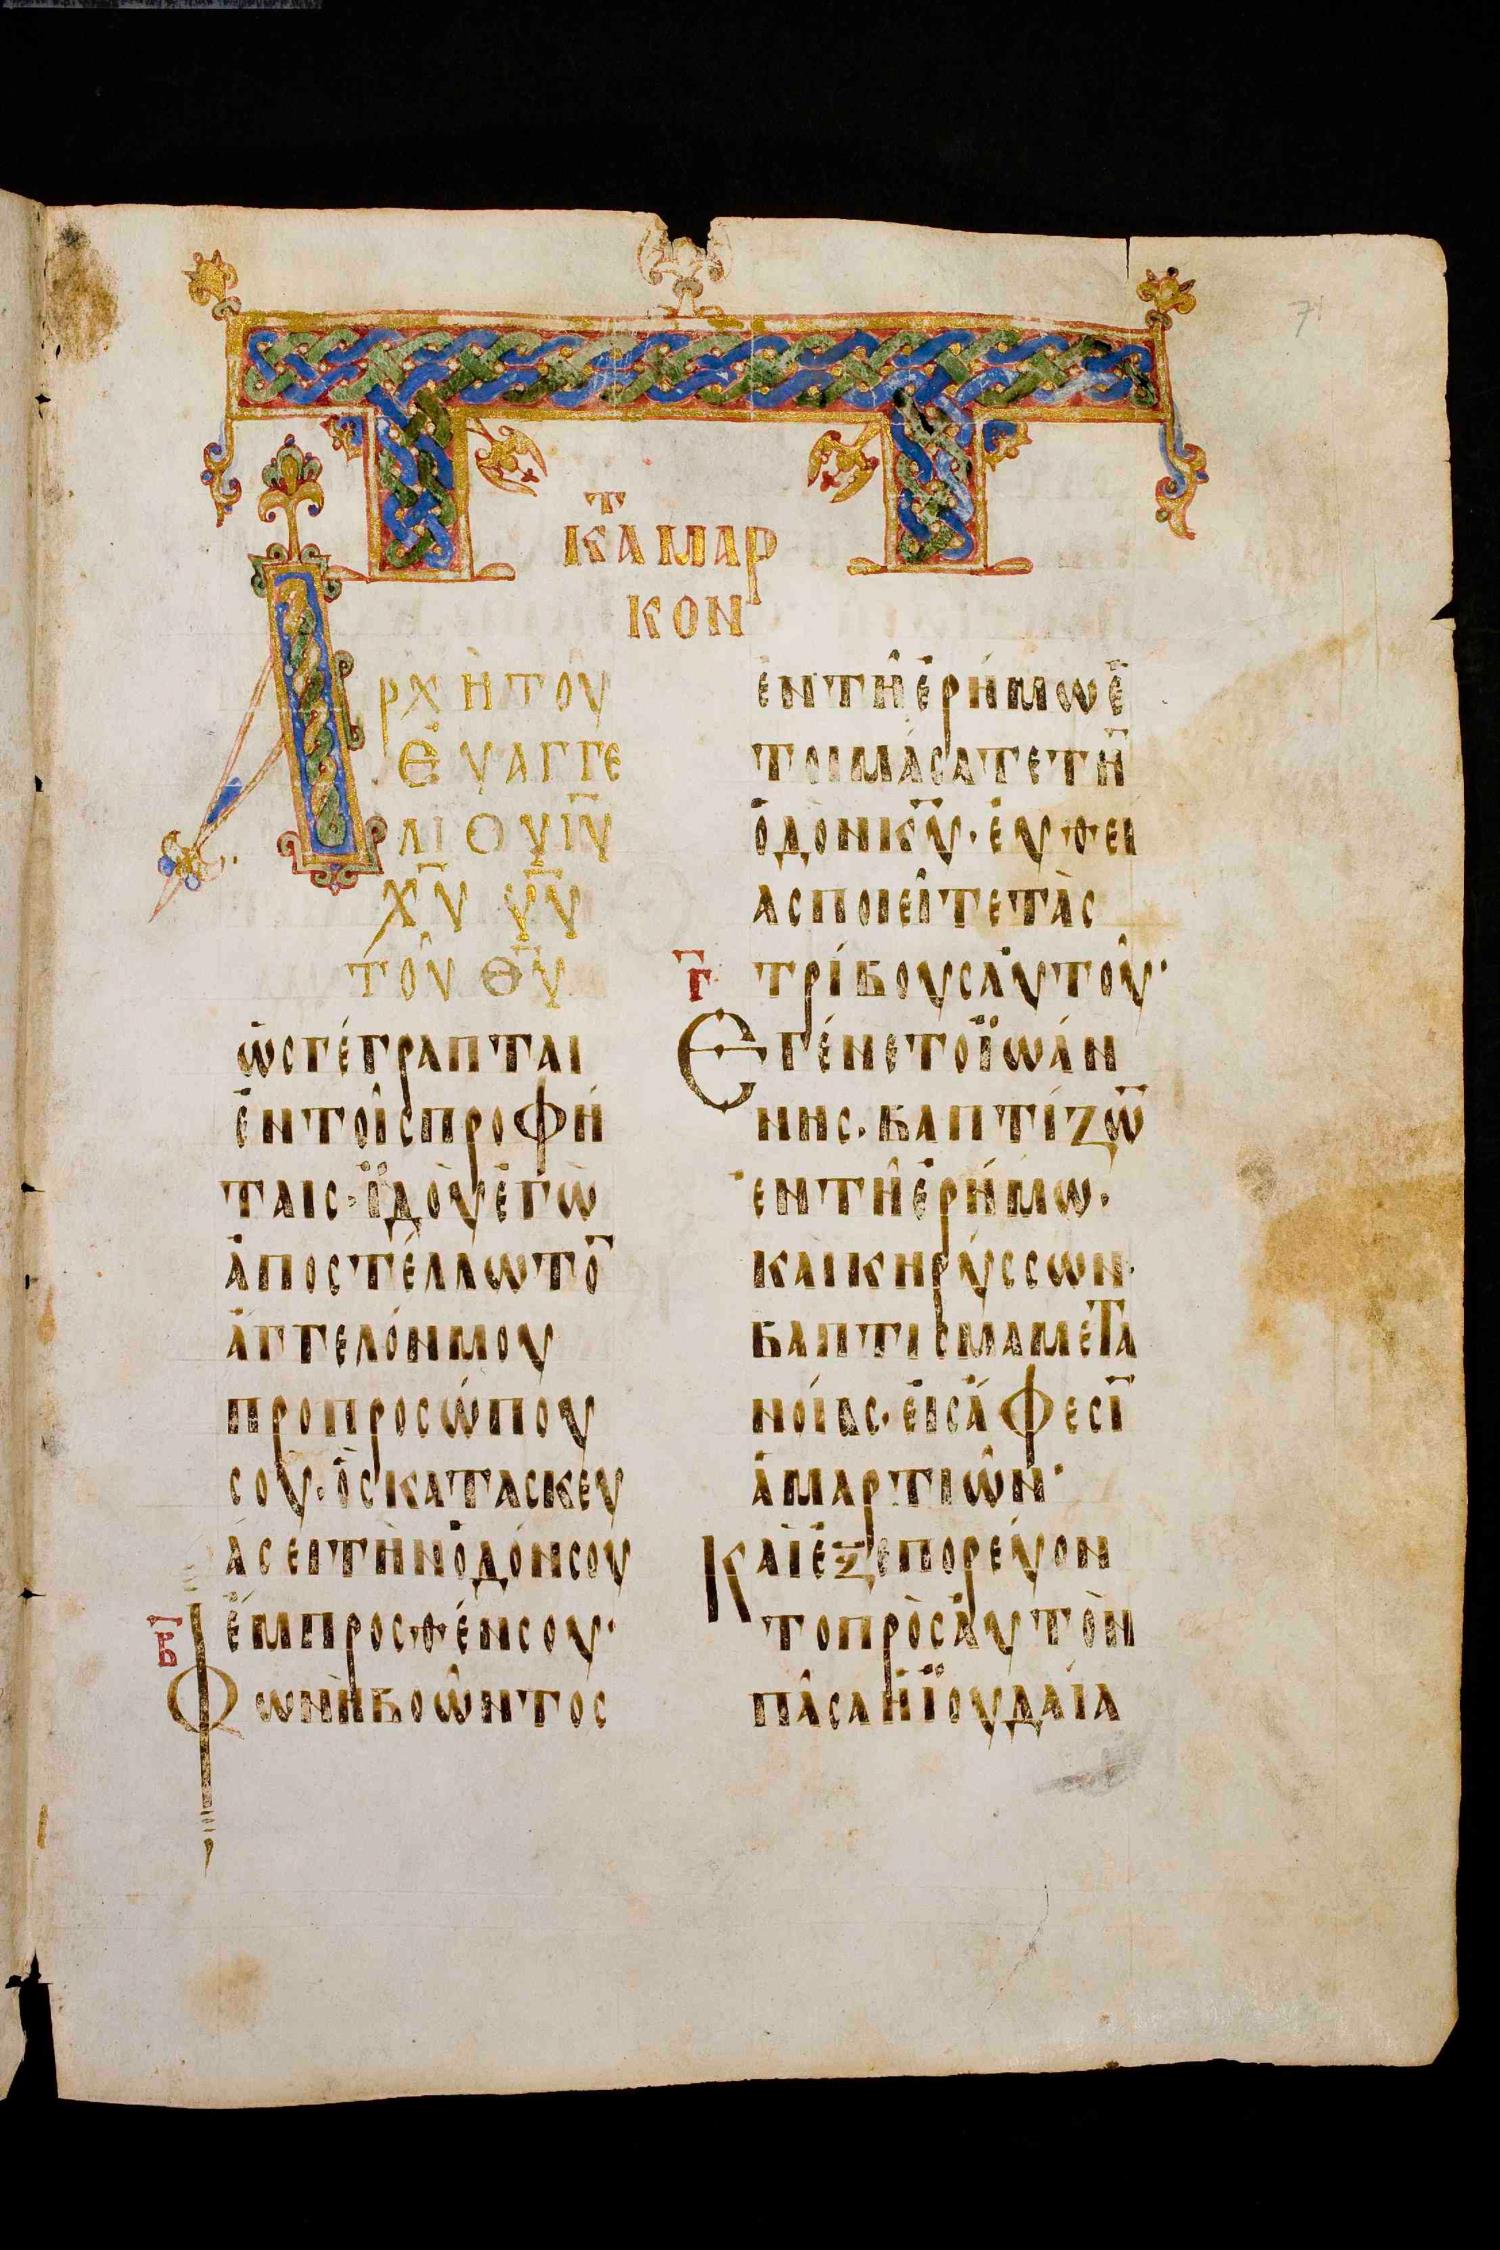 71
ΚΑ̅Τ ΜΑΡ
ΚΟΝ
ΑΡΧῊ ΤΟῦ
ΕΥΑΓΓΕ
ΛΙΟΥ ΙΥ̅
ΧΥ̅ ΥΥ̅
ΤΟῦ ΘΥ̅
ὡς γέγραπται
ἐν τοῖς προφή
ταις· ἰ̈δοὺ ἐγὼ
ἀποστέλλω το̅
ἄγγελόν μου
πρὸ προσώπου
σου· ὃς κατασκευ
άσει τὴν ὁδόν σου
ἔμπροσθέν σου·
Β̅
Φωνὴ βοῶντος
ἐν τῆ ἐρήμω ἑ
τοιμάσατε τη̅
ὁδὸν κυ̅· εὐθεί
ας ποιεῖτε τὰς
Γ̅
τρίβους αὐτοῦ·
Ἐγένετο ἰ̈ωάν
νης· βαπτίζω̅
ἐν τῆ ἐρήμω·
καὶ κηρύσσων·
βάπτισμα μετα
νοίας· εἰς ἄφεσι̅
ἁμαρτιῶν·
Καὶ ἐξεπορεύον
το πρὸς αὐτὸν
πᾶσα ἡ ἰ̈ουδαία